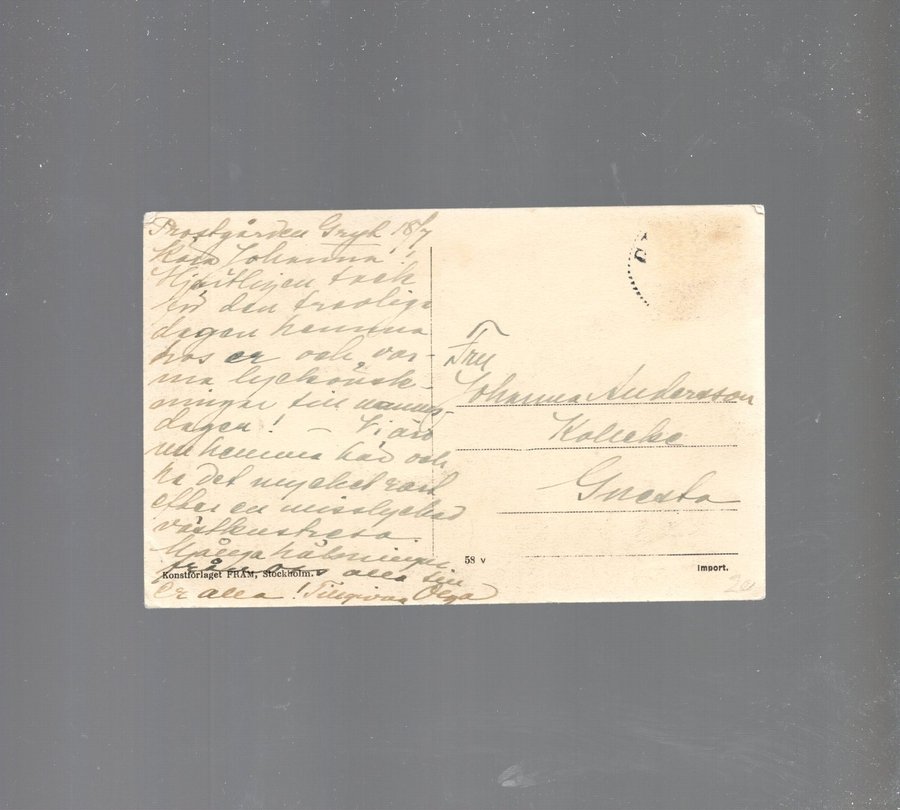 Prostgården Gryt 18/7
Kära Johanna!
Hjärtligen tack
för den trevliga
dagen hemma
hos er och var-
ma lyckönsk-
ningar till namns-
dagen! – Vi äro
nu hemma här och
ha det mycket rart
efter en misslyckad
västkustresa.
Många hälsningar
från oss alla till
er alla! Tillgivna Olga
Konstförlaget FRAM, Stockholm.
Fru
Johanna Andersson
Gnesta
58 v
Import.